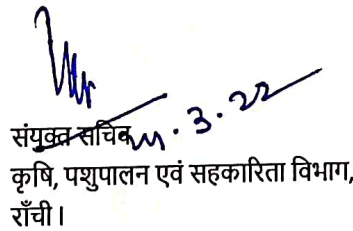 संयुक्त सचिव
कृषि, पशुपालन एवं सहकारिता विभाग,
राँची।